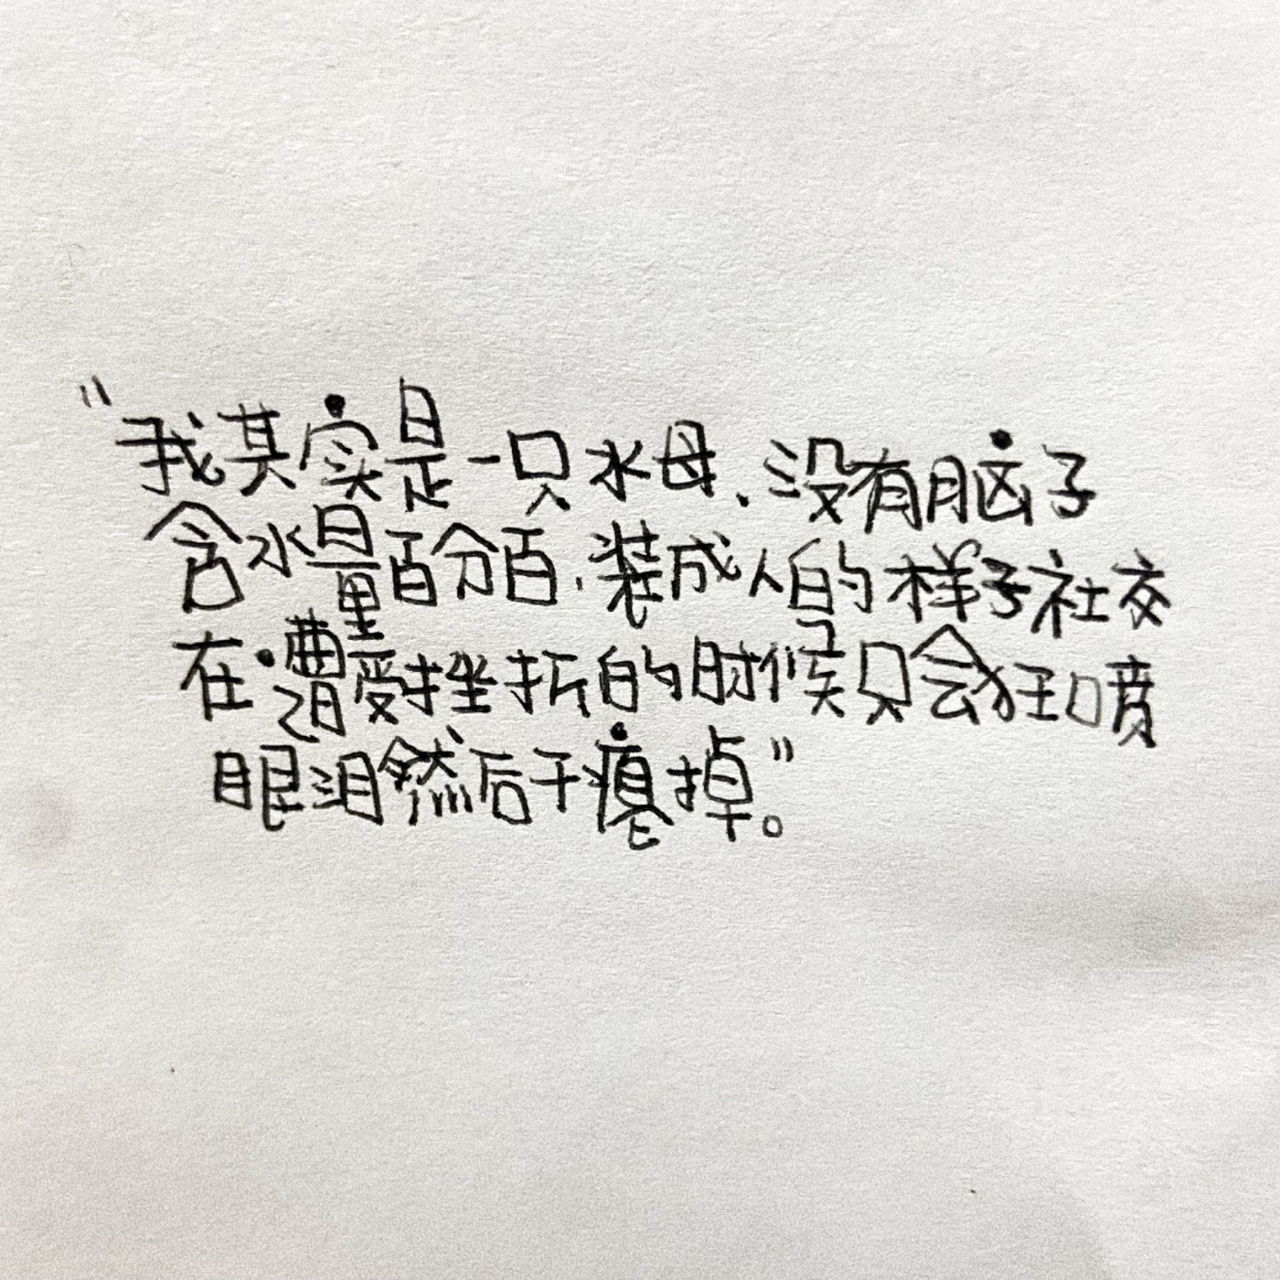 “我其实是一只水母、没有脑子
含水量百分百，装成人的样子社交
在遭受挫折的时候只会狂喷
眼泪然后干瘪掉。”